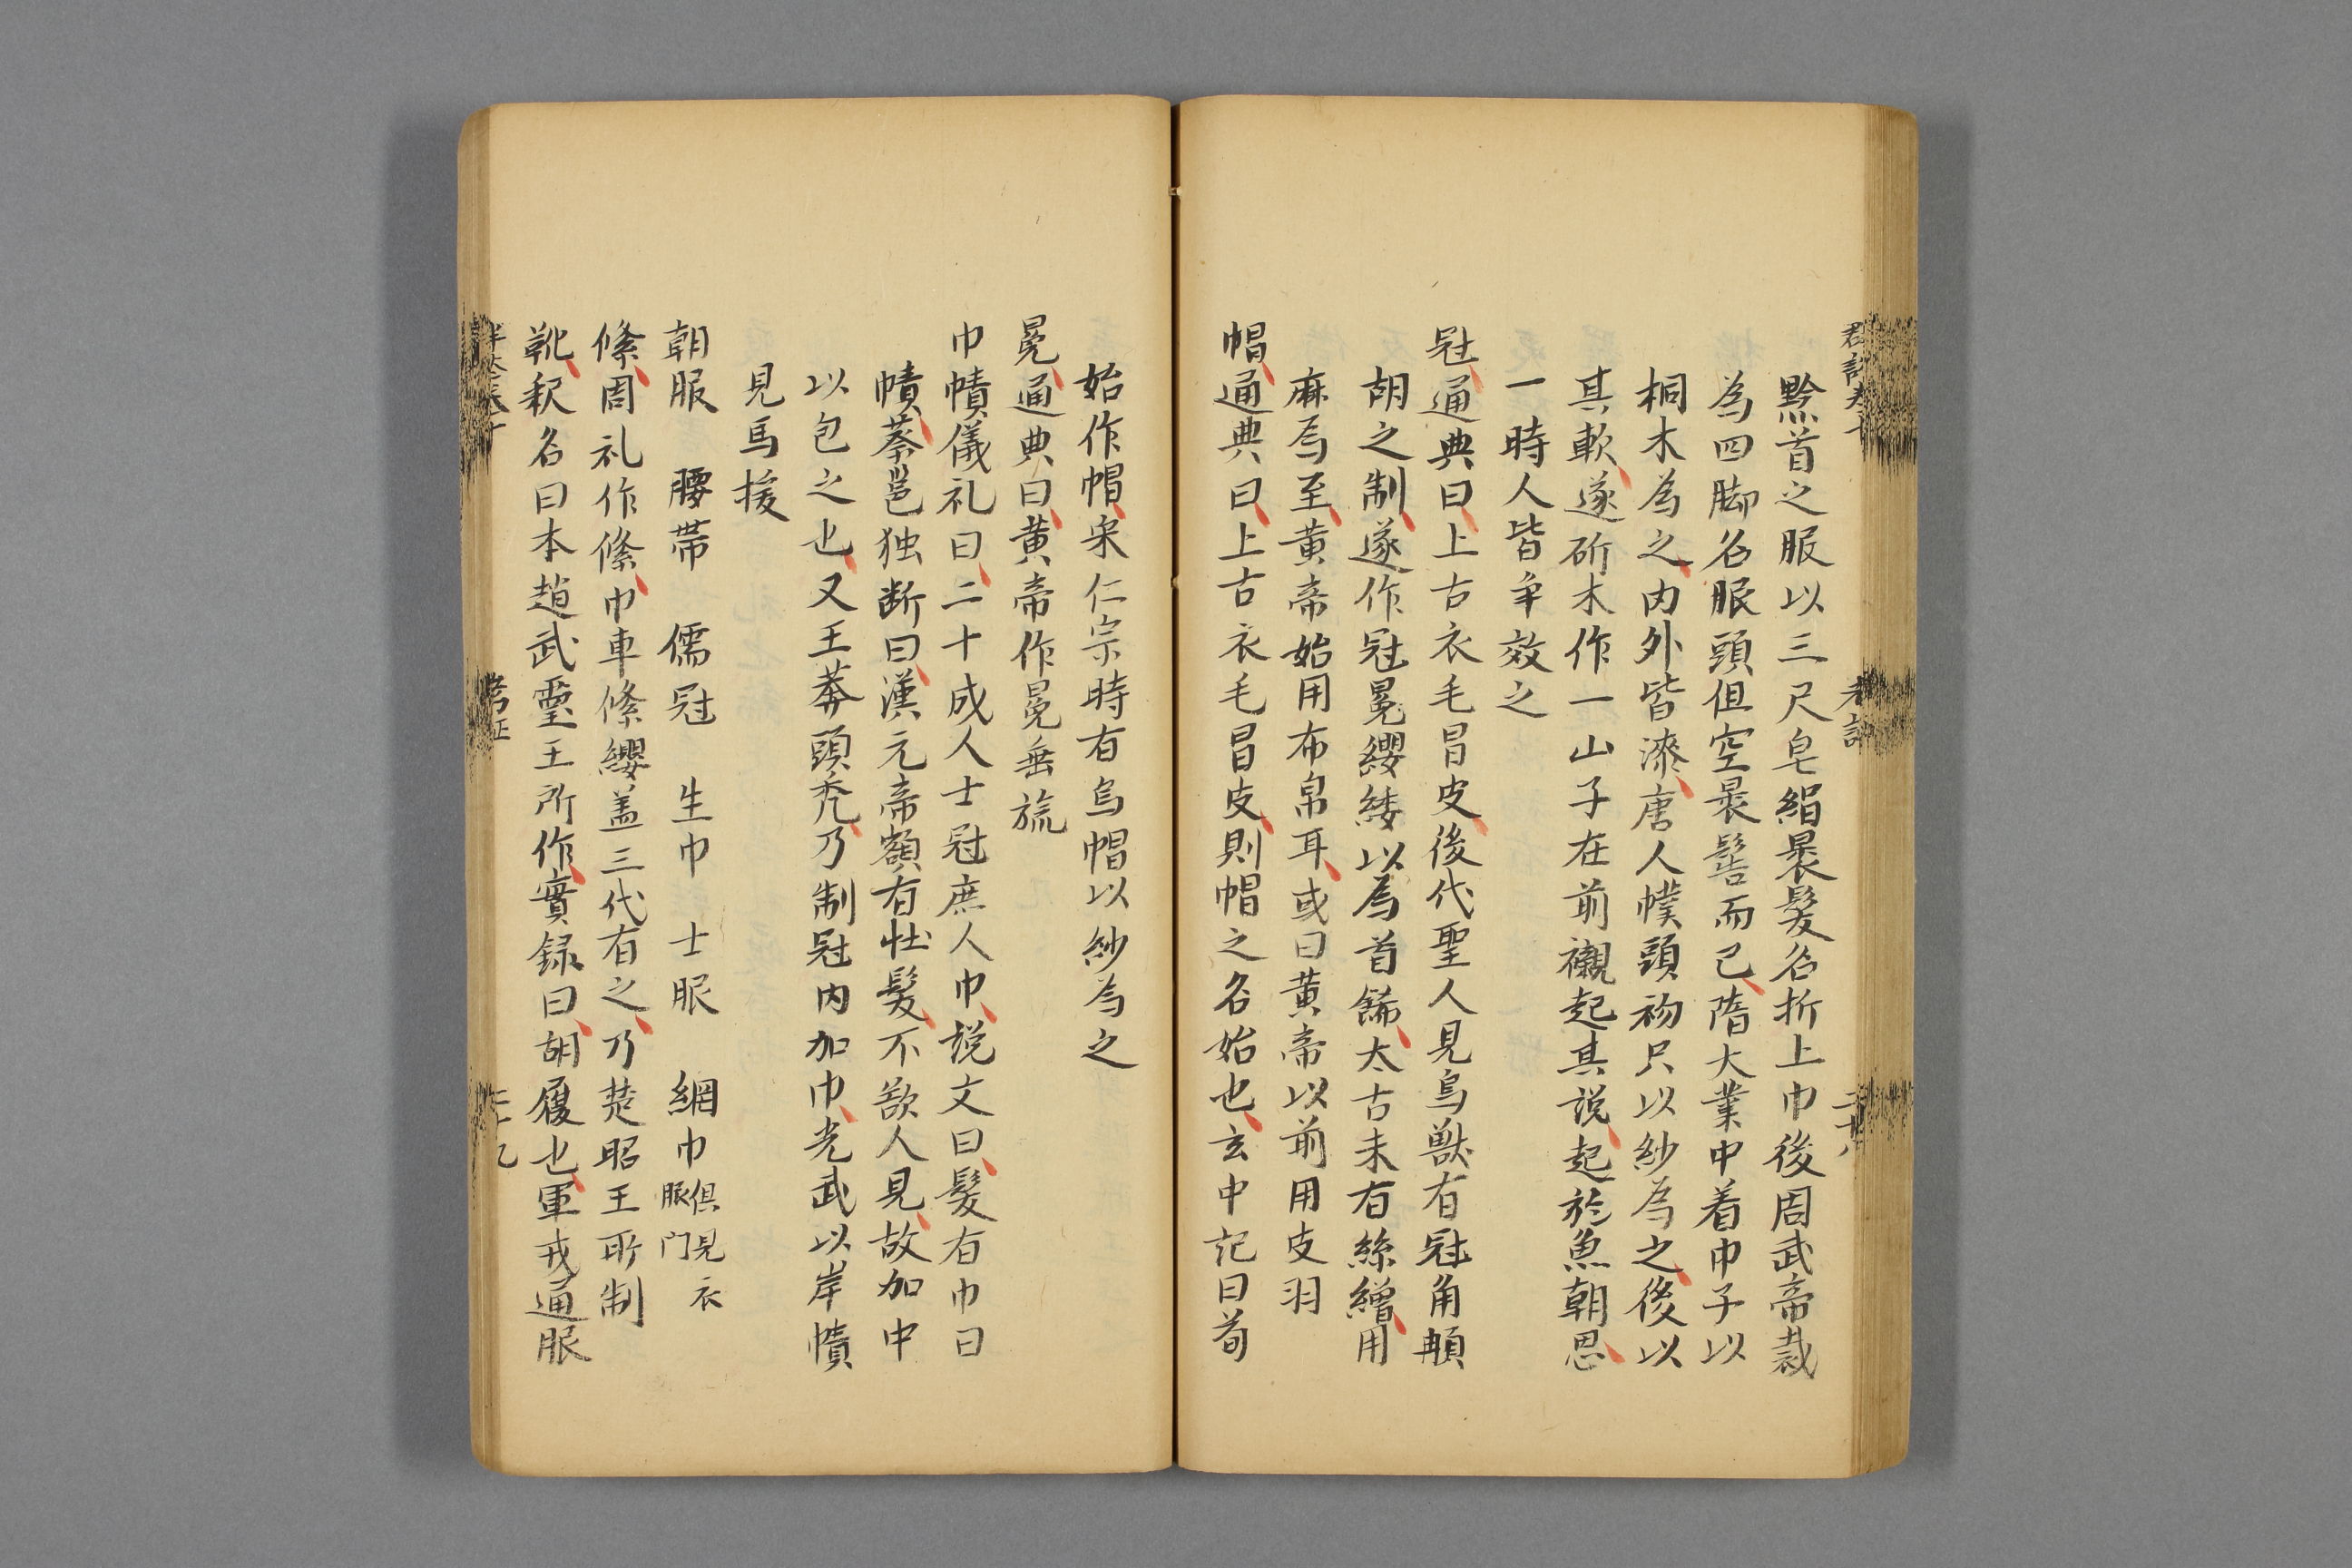 黔首之服以三尺皂絹褁髮名折上巾後周武帝裁
為四脚名服頭但空褁髻而已隋大業中着巾子以
桐木為之内外皆漆唐人幞頭初只以紗為之後以
其軟遂斫木作一山子在前襯起其説起於魚朝恩
一時人皆争效之
冠通典曰上古衣毛冒皮後代聖人見鳥獸有冠角䫇
胡之制遂作冠冕纓緌以為首餙太古未有絲繒用
麻焉至黄帝始用布帛耳或曰黄帝以前用皮羽
帽通典曰上古衣毛冒皮則帽之名始也玄中記曰荀
始作帽宋仁宗時有烏帽以紗為之
冕通典曰黄帝作冕垂旒
巾幘儀礼曰二十成人士冠庶人巾説文曰髮有巾曰
幘蔡邕独断曰漢元帝額有壮髮不欲人見故加中
以包之也又王莽頭禿乃制冠内加巾光武以岸幘
見馬援
朝服　腰帶　儒冠　生巾　士服　網巾俱見衣服門
絛周礼作絛巾車絛纓盖三代有之乃楚昭王所制
靴釈名曰本趙武靈王所作實録曰胡履也軍戎通服
考証